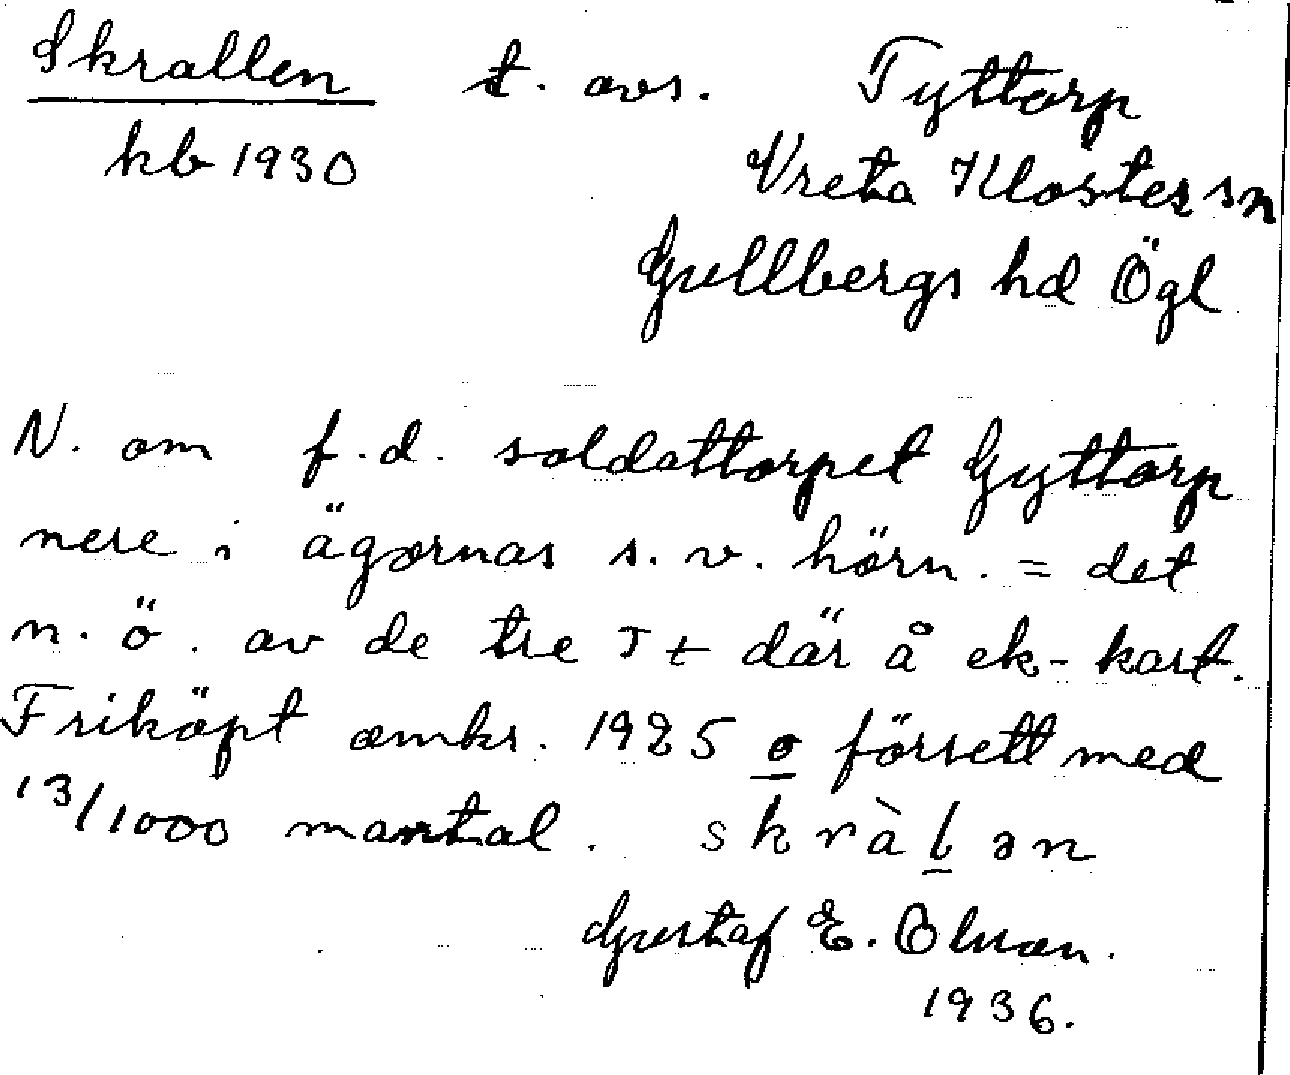 Skrallen t. avs. Tyttorp
kb 1930 Vreta Kloster sn
Gullbergs hd Ögl
N. om f.d. soldattorpet Gyttorp
nere i ägornas s.v. hörn. = det
n.ö. av de tre Tt där å ek-kart.
Friköpt omkr. 1925 o försett med
13/1000 mantal. skràlən
Gustaf E. Olson.
1936.